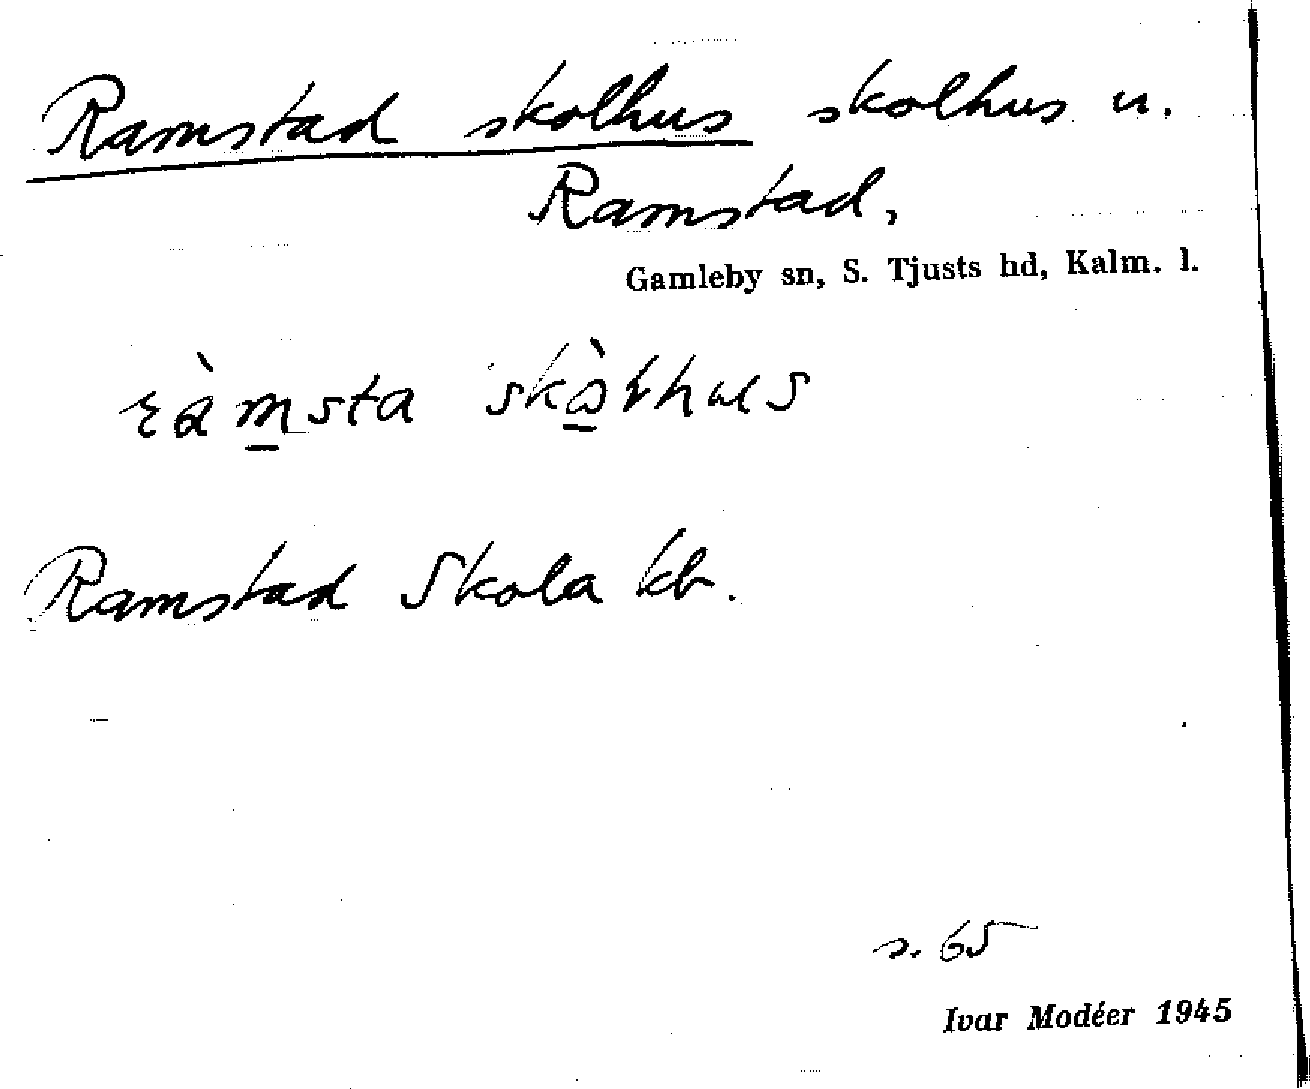 Ramstad skolhus skolhus u.
Ramstad,
Gamleby sn, S. Tjusts hd, Kalm. l.
Ramstad Skola kb.
s. 65
Ivar Modéer 1945